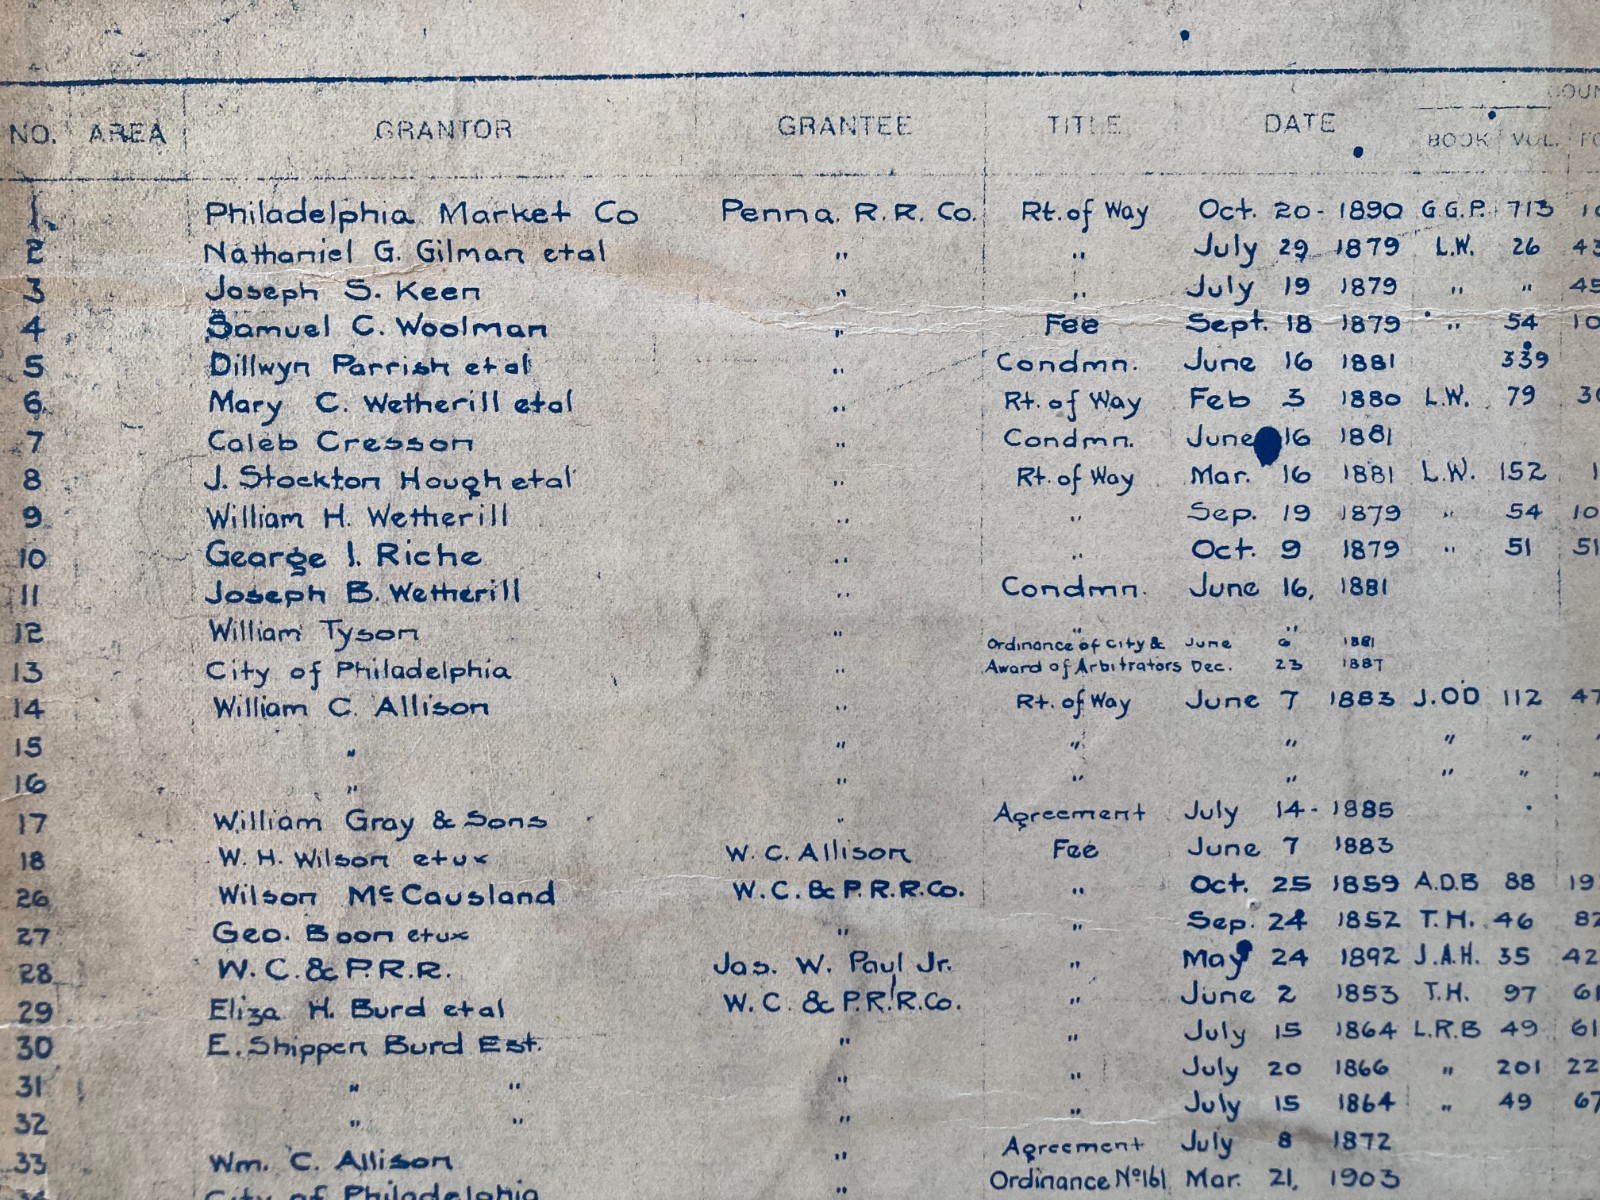 NO. AREA GRANTOR GRANTEE TITLE DATE BOOK VOL.
1. Philadelphia Market Co Penna. R.R. Co. Rt. of Way Oct. 20- 1890 G.G.P. 713
2 Nathaniel G. Gilman etal " " July 29 1879 L.W. 26
3 Joseph S. Keen " " July 19 1879 " "
4 Samuel C. Woolman " Fee Sept. 18 1879 " 54
5 Dillwyn Parrish etal " Condmn. June 16 1881 339
6 Mary C. Wetherill etal " Rt. of Way Feb 3 1880 L.W. 79
7 Caleb Cresson " Condmn. June 16 1881
8 J. Stockton Hough etal " Rt. of Way Mar. 16 1881 L.W. 152
9 William H. Wetherill " " Sep. 19 1879 " 54
10 George I. Riche " " Oct. 9 1879 " 51
11 Joseph B. Wetherill " Condmn. June 16, 1881
12 William Tyson " " "
Ordinance of City & June 6 1881
13 City of Philadelphia " Award of Arbitrators Dec. 23 1887
14 William C. Allison " Rt. of Way June 7 1883 J.OD 112 47
15 " " " " " " "
16 " " " " " " "
17 William Gray & Sons " Agreement July 14- 1885
18 W. H. Wilson etux W. C. Allison Fee June 7 1883
26 Wilson McCausland W. C. & P. R. R. Co. " Oct. 25 1859 A.D.B 88
27 Geo. Boon etux " " Sep. 24 1852 T.H. 46
28 W. C. & P. R. R. Jas. W. Paul Jr. " May 24 1892 J.A.H. 35
29 Eliza H. Burd etal W. C. & P. R. R. Co. " June 2 1853 T.H. 97
30 E. Shippen Burd Est. " " July 15 1864 L.R.B 49
31 " " " " July 20 1866 " 201
32 " " " " July 15 1864 " 49
33 Wm. C. Allison " Agreement July 8 1872
City of Philadelphia " Ordinance No 161 Mar. 21, 1903